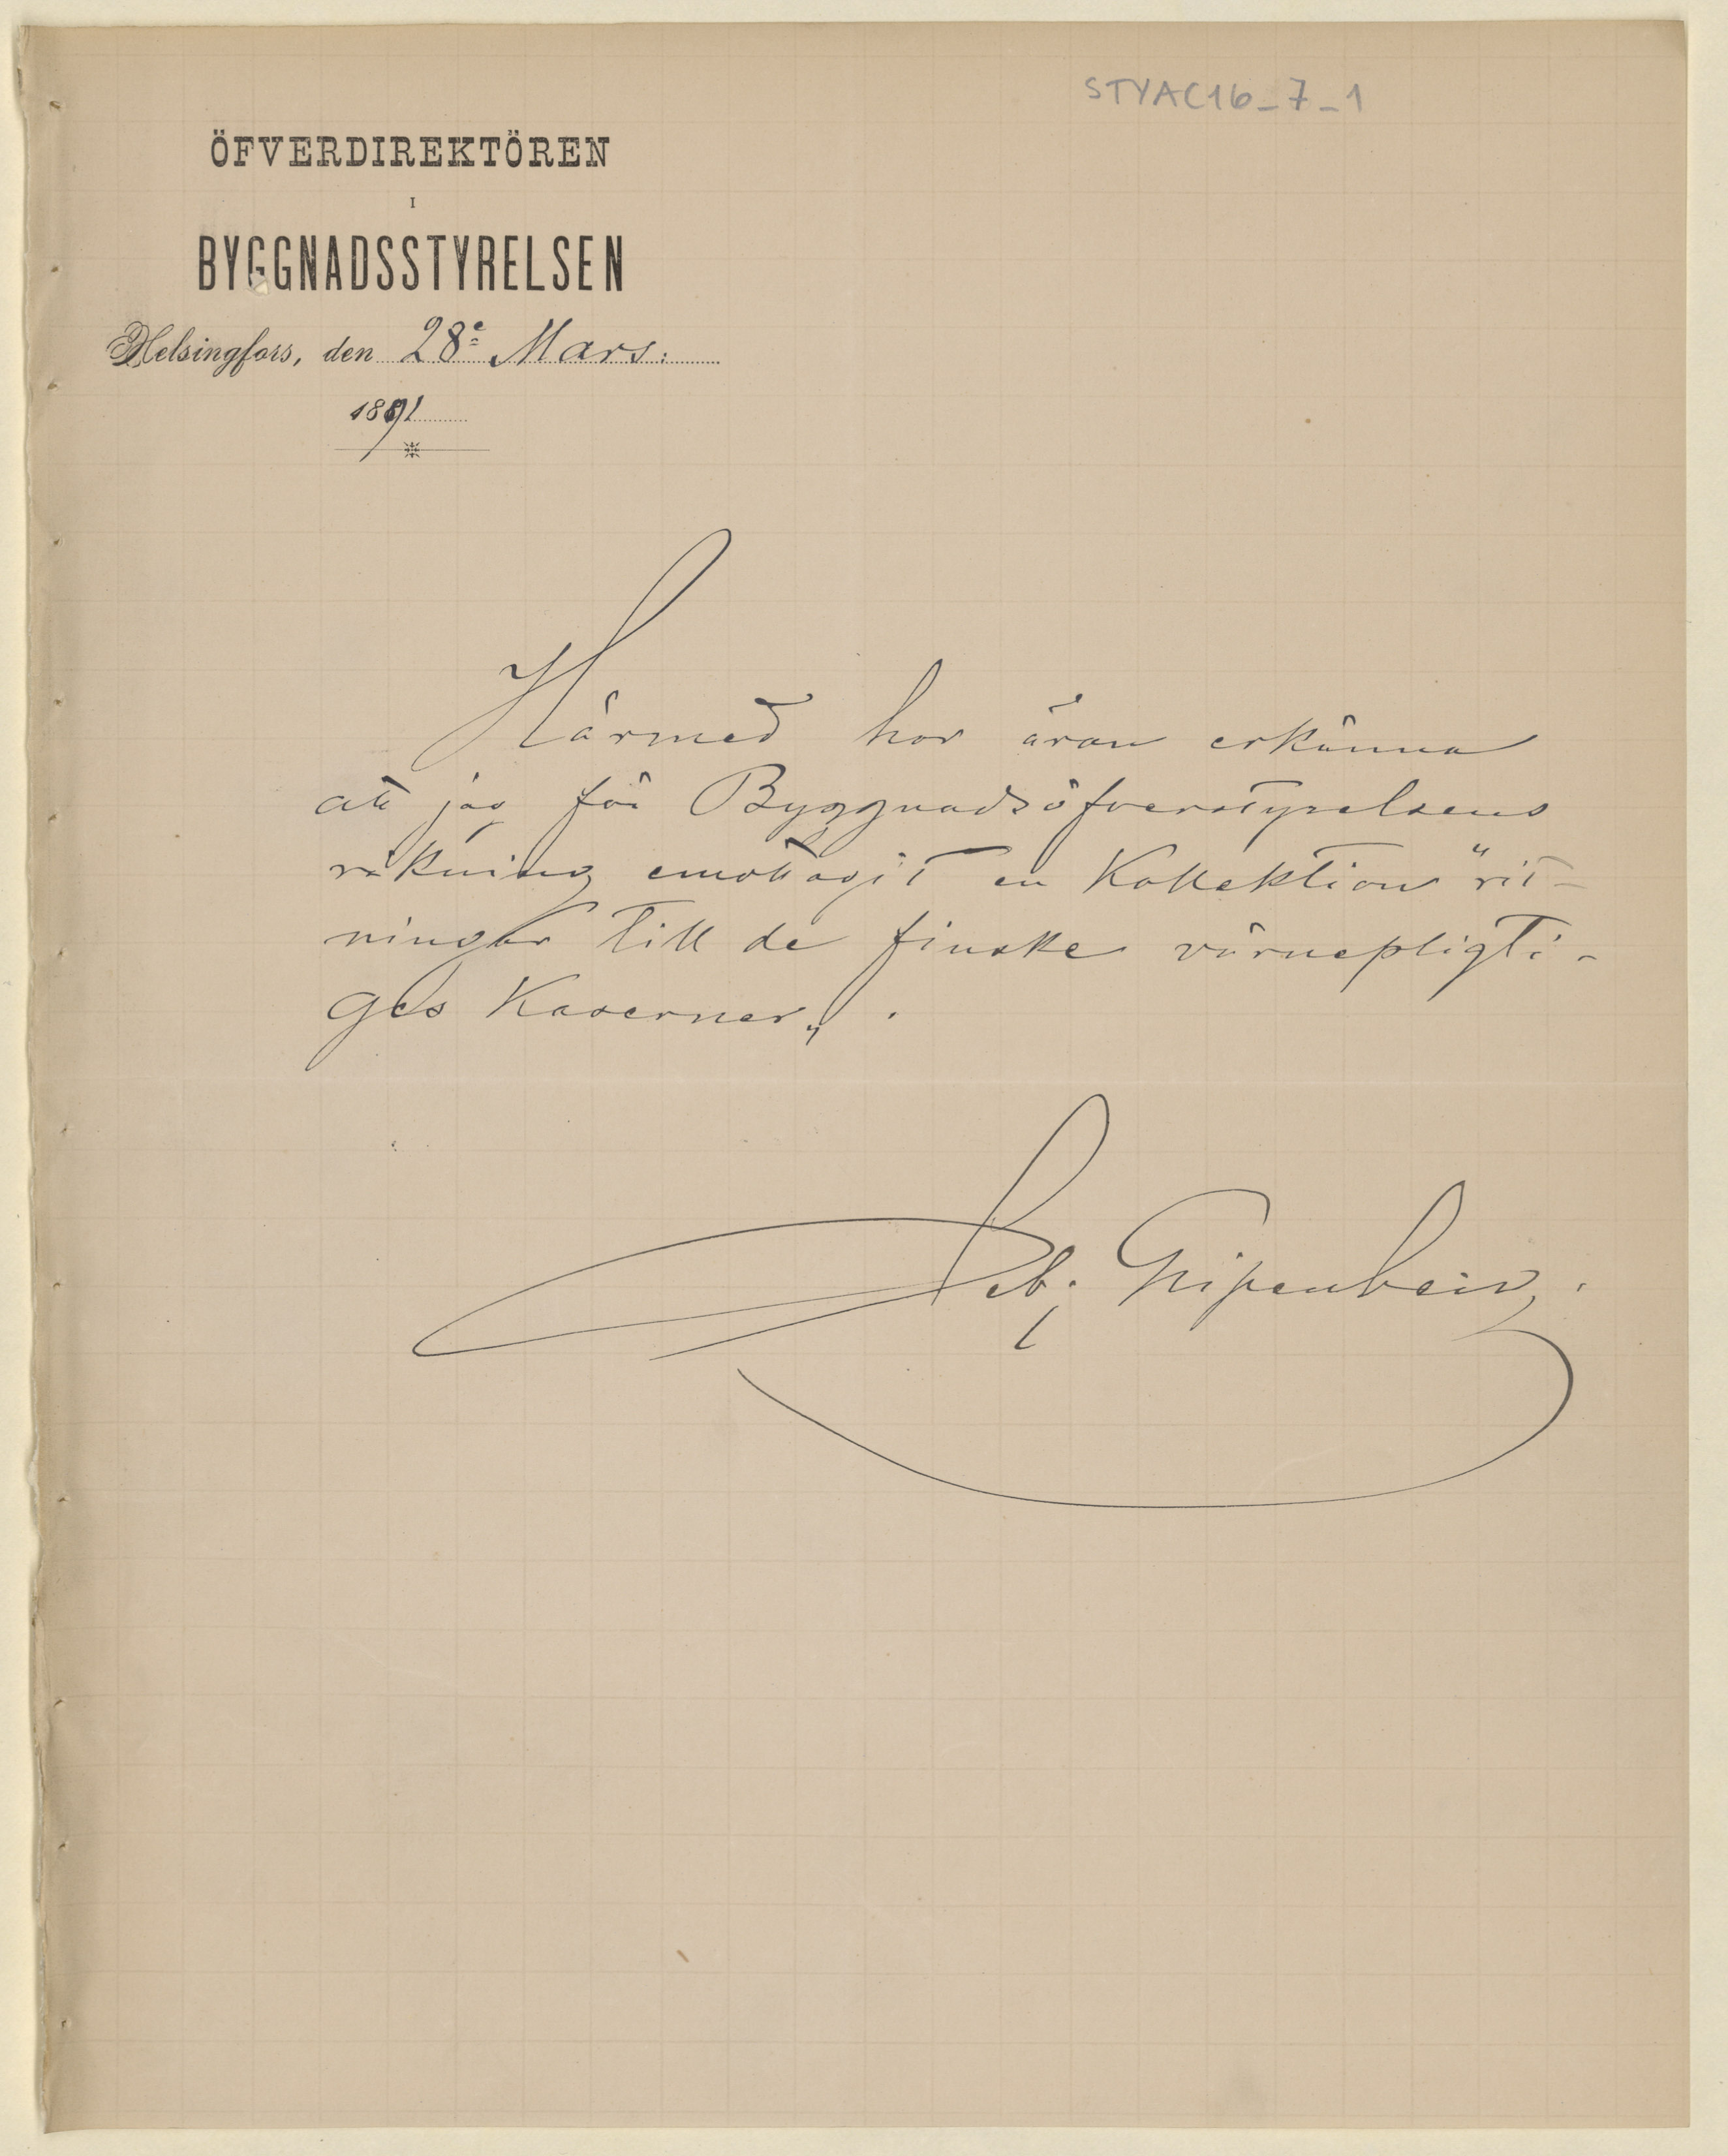 STYAC16_7_1
ÖFVERDIREKTÖREN
I
BYGGNADSSTYRELSEN
Helsingfors, den 28e Mars.
1891
Härmed har äran erkänna
att jag för Byggnadsöfverstyrelsens
räkning emottagit en Kollektion "rit-
ningar till de finska värnepligti-
ges Kaserner„.
Seb. Gripenberg.